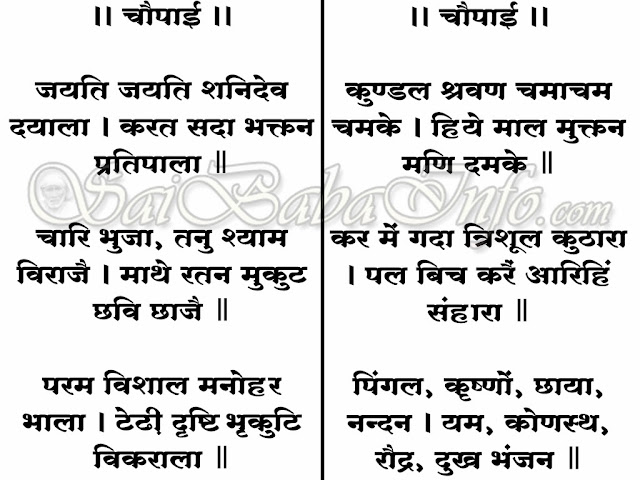 ।। चौपाई ।।
जयति जयति शनिदेव
दयाला । करत सदा भक्तन
प्रतिपाला ॥
चारि भुजा, तनु श्याम
विराजै । माथे रतन मुकुट
छवि छाजै ॥
परम विशाल मनोहर
भाला । टेढ़ी दृष्टि भृकुटि
विकराला ॥
।। चौपाई ।।
कुण्डल श्रवण चमाचम
चमके । हिये माल मुक्तन
मणि दमके ॥
कर में गदा त्रिशूल कुठारा
। पल बिच करैं आरिहिं
संहारा ॥
पिंगल, कृष्णों, छाया,
नन्दन । यम, कोणस्थ,
रौद्र, दुख भंजन ॥
SaiBabaInfo.com